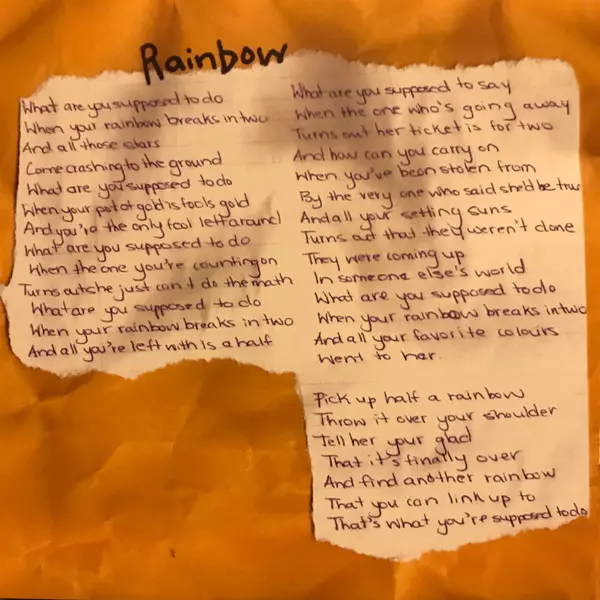 Rainbow
What are you supposed to do
When your rainbow breaks in two
And all those stars
Come crashing to the ground
What are you supposed to do
When your pot of gold is fools gold
And you're the only fool left around
What are you supposed to do
When the one you're counting on
Turns out che just can't do the math
What are you supposed to do
When your rainbow breaks in two
And all you're left with is a half
What are you supposed to say
When the one who's going away
Turns out her ticket is for two
And how can you carry on
When you've been stolen from
By the very one who said she'd be true
And all your setting suns
Turns out that they weren't done
They were coming up
In someone else's world
What are you supposed to do
When your rainbow breaks in two
And all your favorite colours
Went to her.
Pick up half a rainbow
Throw it over your shoulder
Tell her your glad
That it's finally over
And find another rainbow
That you can link up to
That's what you're supposed to do